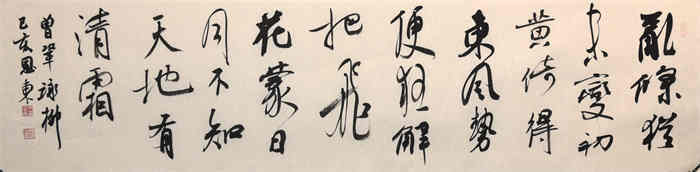 亂條猶
未變初
黄倚得
東風勢
便狂解
把飛
花蒙日
月不知
天地有
清霜
曾鞏詠柳
己亥恩東